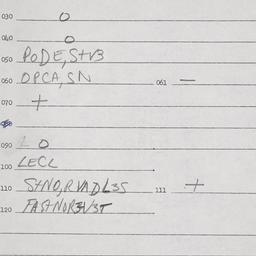 030 O
040 O
050 PODE,S+VB
060 OPCA,SN 061 —
070 +
090 O
100 LECL
110 S+NO,RVADL3S 111 +
120 FAS+NOR3V3T